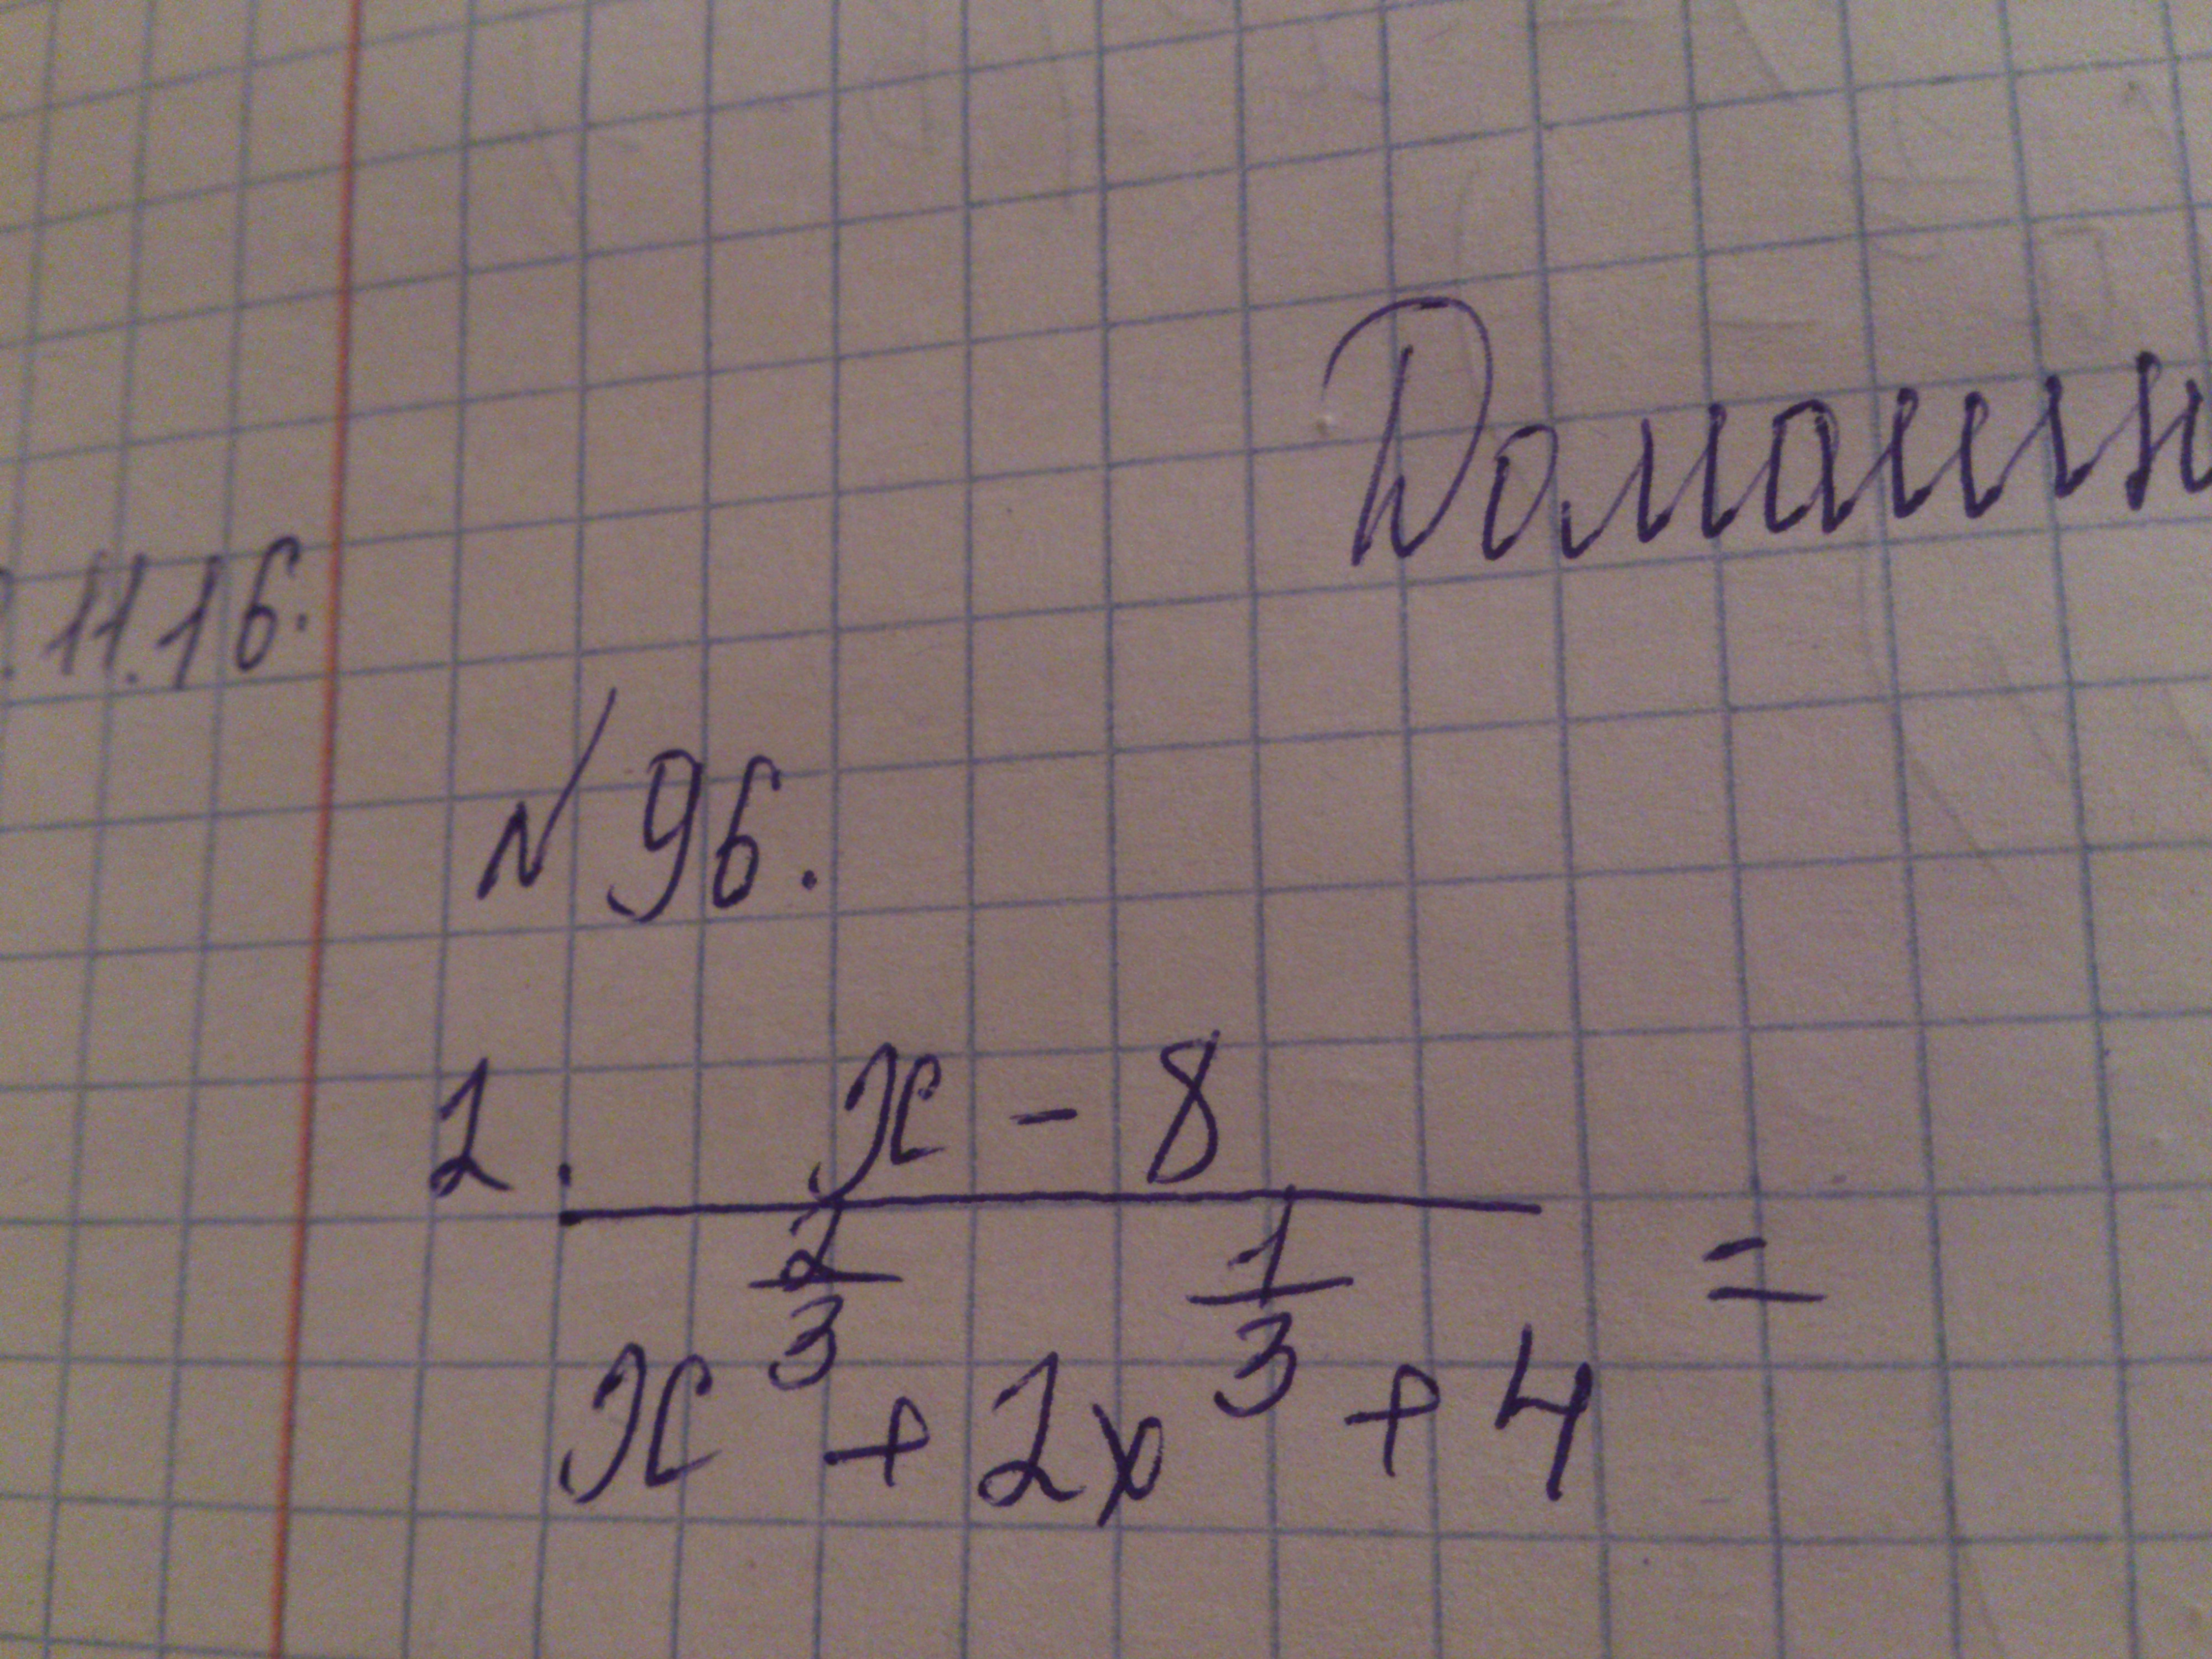 Домашн
.11.16.
№ 96.
2. x - 8
x^{2/3} + 2x^{1/3} + 4 =